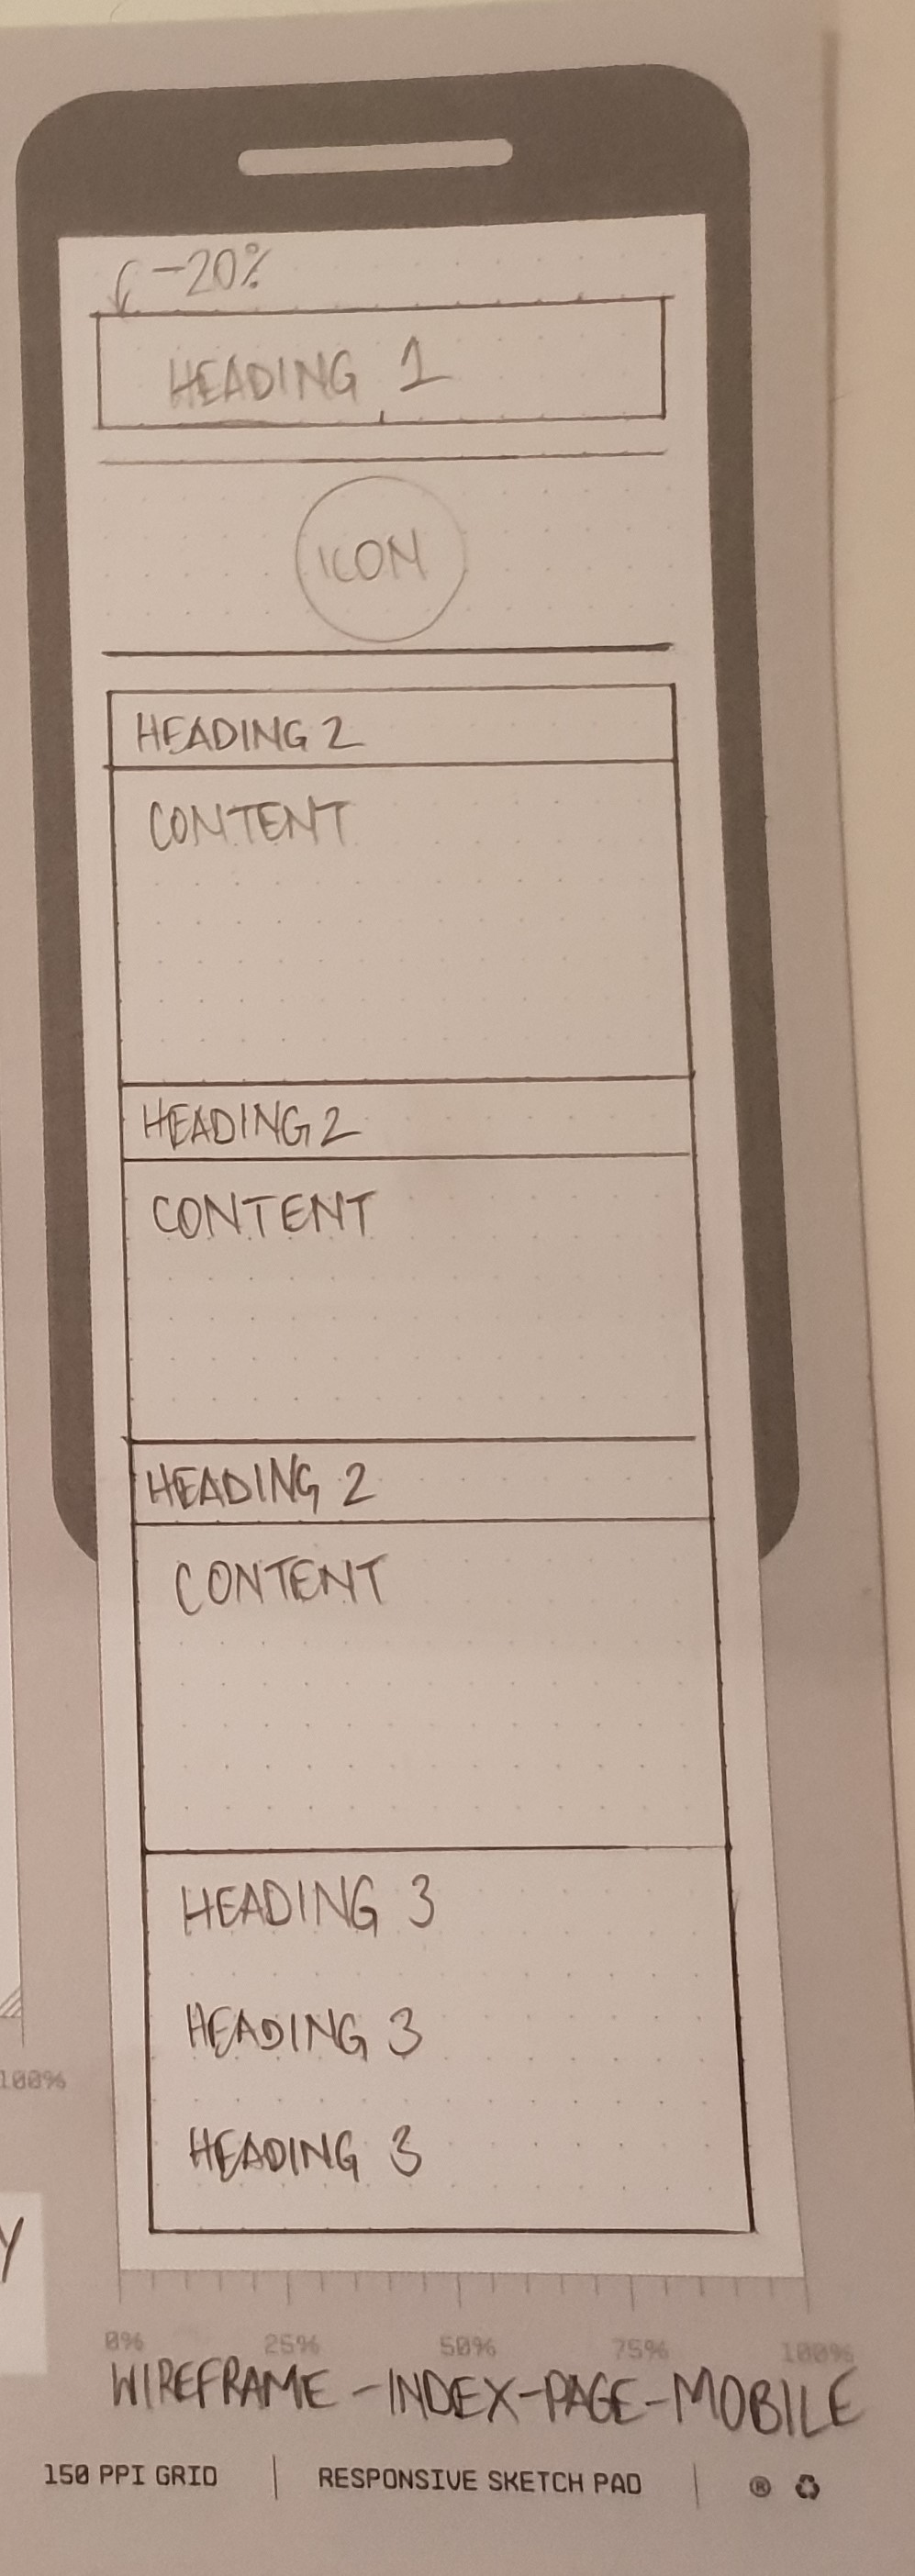 -20%
HEADING 1
ICON
HEADING 2
CONTENT
HEADING 2
CONTENT
HEADING 2
CONTENT
HEADING 3
HEADING 3
HEADING 3
100%
Y
0% 25% 50% 75% 100%
WIREFRAME-INDEX-PAGE-MOBILE
150 PPI GRID | RESPONSIVE SKETCH PAD | ®